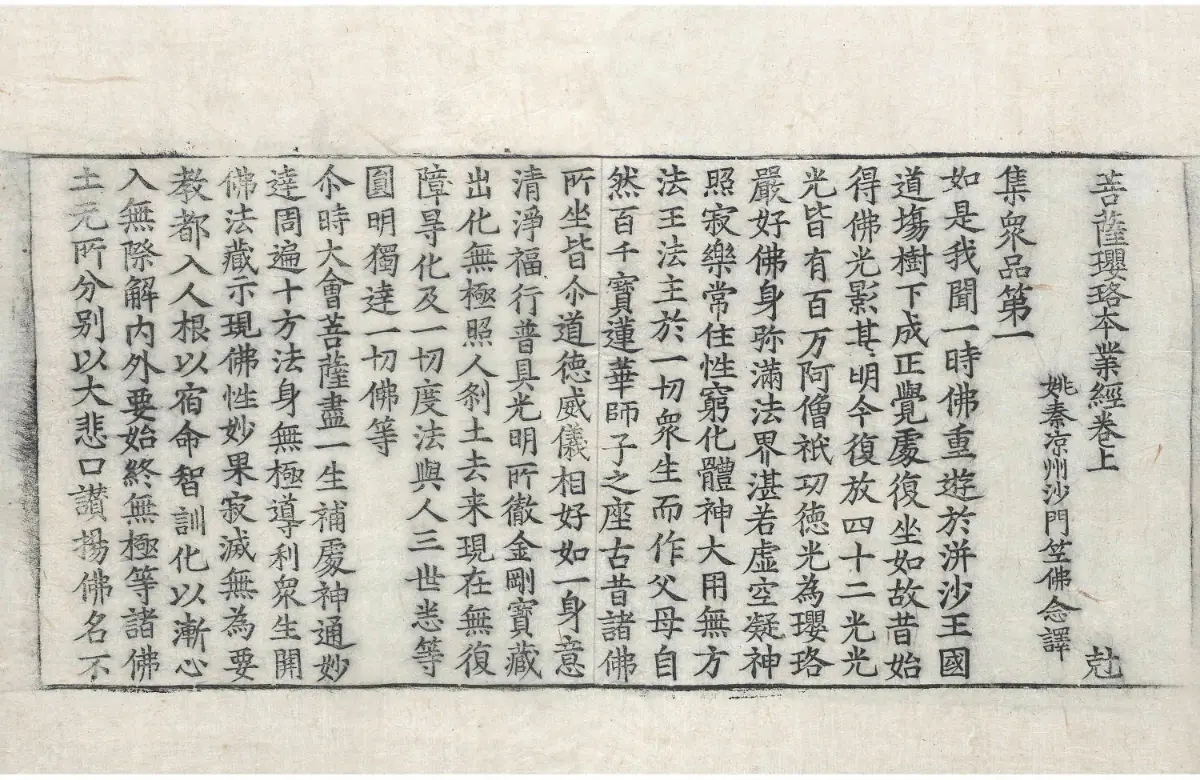 菩薩瓔珞本業經卷上 尅
姚秦凉州沙門竺佛念譯
集衆品第一
如是我聞一時佛重遊於洴沙王國
道塲樹下成正覺處復坐如故昔始
得佛光影甚明今復放四十二光光
光皆有百万阿僧祇功德光為瓔珞
嚴好佛身弥滿法界湛若虛空凝神
照寂樂常住性窮化體神大用無方
法王法主於一切衆生而作父母自
然百千寶蓮華師子之座古昔諸佛
所坐皆尒道德威儀相好如一身意
清淨福行普具光明所徹金剛寶藏
出化無極照人刹土去来現在無復
障㝵化及一切度法與人三世悉等
圓明獨達一切佛等
尒時大會菩薩盡一生補處神通妙
達周遍十方法身無極導利衆生開
佛法藏示現佛性妙果寂滅無為要
教都入人根以宿命智訓化以漸心
入無際解内外要始終無極等諸佛
土元所分别以大悲口讃揚佛名不